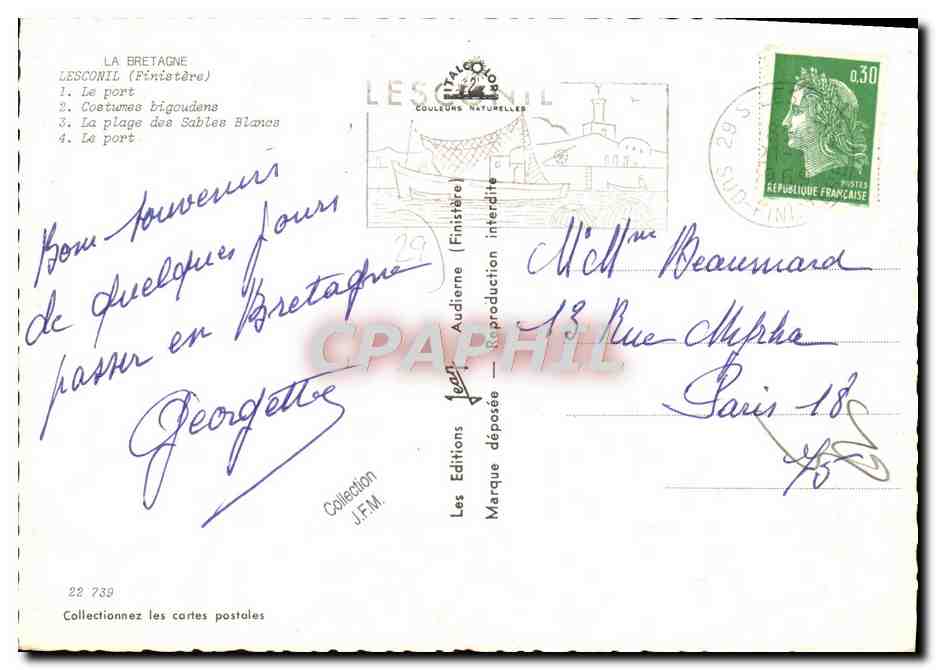 LA BRETAGNE
LESCONIL (Finistère)
1. Le port
2. Costumes bigoudens
3. La plage des Sables Blancs
4. Le port
Bons souvenirs
de quelques jours
passer en Bretagne
Georgette
Collection
J.F.M.
22 739
Collectionnez les cartes postales
ITALCOLOR
COULEURS NATURELLES
Les Editions Jean Audierne (Finistère)
Marque déposée — Reproduction interdite
LESCONIL
29
29 S
SUD-FINI
0,30
POSTES
REPUBLIQUE FRANÇAISE
M. Mme Beaumard
13 Rue Myrha
Paris 18
75
CPAPHIL